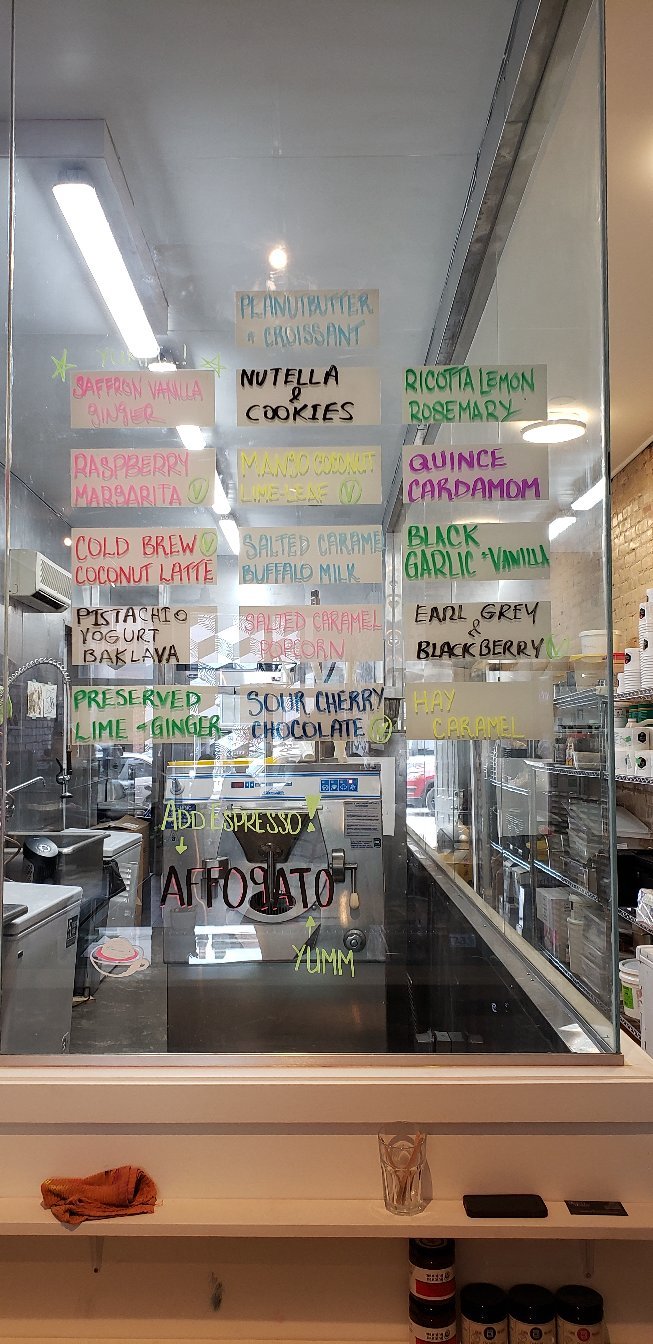 PEANUTBUTTER
+ CROISSANT
SAFFRON VANILLA
GINGER
NUTELLA
&
COOKIES
RICOTTA LEMON
ROSEMARY
RASPBERRY
MARGARITA V
MANGO COCONUT
LIME LEAF V
QUINCE
CARDAMOM
COLD BREW V
COCONUT LATTE
SALTED CARAMEL
BUFFALO MILK
BLACK
GARLIC + VANILLA
PISTACHIO
YOGURT
BAKLAVA
SALTED CARAMEL
POPCORN
EARL GREY
&
BLACKBERRY V
PRESERVED
LIME + GINGER
SOUR CHERRY
CHOCOLATE V
HAY
CARAMEL
ADD ESPRESSO!
AFFOGATO
YUMM